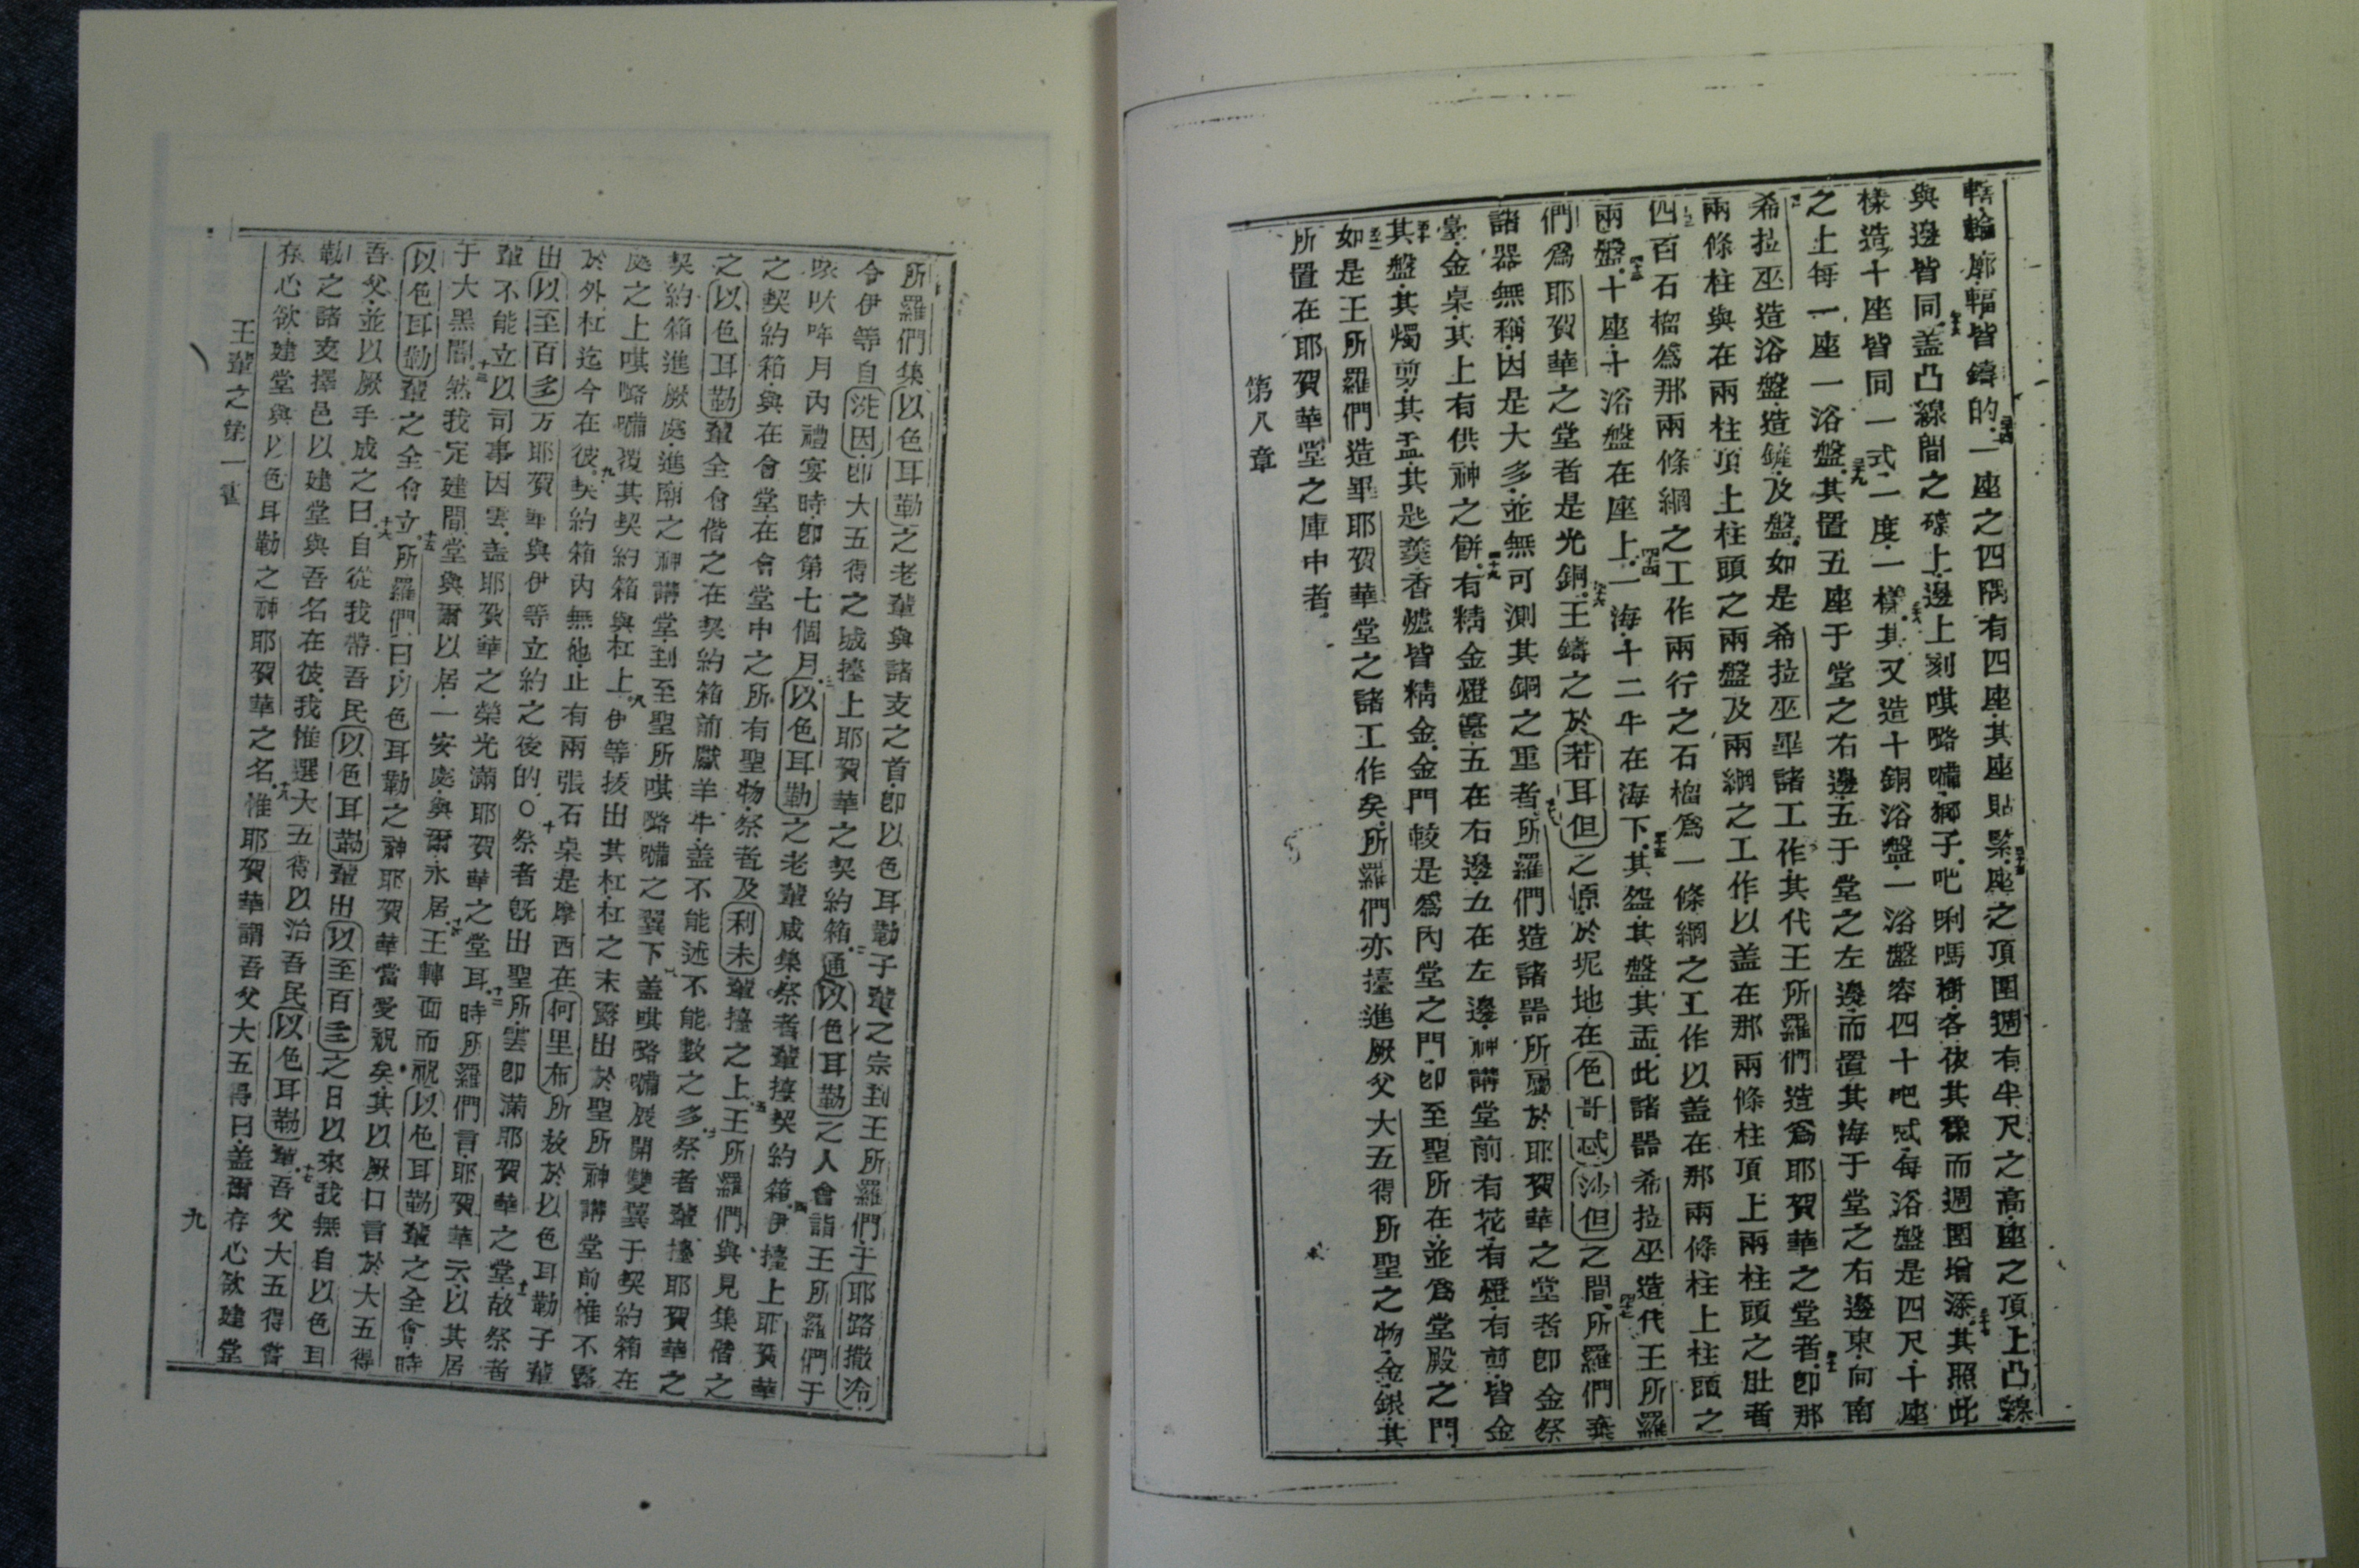 轄輪廓輻皆鑄的一座之四隅有四座其座貼緊座之頂圍週有半尺之高座之頂上凸線
與邊皆同盖凸線間之磔上邊上刻唭咯嘯獅子吧唎嗎樹各依其穩而週圍增添其照此
樣造十座皆同一式二度一樣其又造十銅浴盤一浴盤容四十吧忒每浴盤是四尺十座
之上每一座一浴盤其置五座于堂之右邊五于堂之左邊而置其海于堂之右邊東向南
希拉巫造浴盤造鏟及盤如是希拉巫畢諸工作其代王所羅們造為耶賀華之堂者即那
兩條柱與在兩柱頂上柱頭之兩盤及兩網之工作以盖在那兩條柱頂上兩柱頭之肚者
四百石榴為那兩條網之工作兩行之石榴為一條網之工作以盖在那兩條柱上柱頭之
兩盤十座十浴盤在座上一海十二牛在海下其盌其盤其盂此諸器希拉巫造代王所羅
們為耶賀華之堂者是光銅王鑄之於若耳但之源於坭地在色哥忒沙但之間所羅們棄
諸器無稱因是大多並無可測其銅之重者所羅們造諸器所屬於耶賀華之堂者即金祭
臺金桌其上有供神之餅有精金燈臺五在右邊五在左邊神講堂前有花有燈有剪皆金
其盤其燭剪其盂其匙羹香爐皆精金金門較是為內堂之門即至聖所在並為堂殿之門
如是王所羅們造畢耶賀華堂之諸工作矣所羅們亦擡進厥父大五得所聖之物金銀其
所置在耶賀華堂之庫中者
第八章
所羅們集以色耳勒之老輩與諸支之首即以色耳勒子輩之宗到王所羅們于耶路撒冷
令伊等自洗因即大五得之城擡上耶賀華之契約箱通以色耳勒之人會詣王所羅們于
月內禮宴時即第七個月以色耳勒之老輩咸集祭者輩擡契約箱伊擡上耶賀華
之契約箱與在會堂在會堂中之所有聖物祭者及利未輩擡之上王所羅們與見集偕之
之以色耳勒輩全會偕之在契約箱前獻羊牛盖不能述不能數之多祭者輩擡耶賀華之
契約箱進厥處進廟之神講堂到至聖所唭咯嘯之翼下盖唭咯嘯展開雙翼于契約箱在
處之上唭咯嘯覆其契約箱與杠上伊等拔出其杠杠之末露出於聖所神講堂前惟不露
於外杠迄今在彼契約箱內無他止有兩張石桌是摩西在何里布所放於以色耳勒子輩
出以至百多方耶賀華與伊等立約之後的○祭者既出聖所雲即滿耶賀華之堂故祭者
輩不能立以司事因雲盖耶賀華之榮光滿耶賀華之堂耳時所羅們言耶賀華云以其居
于大黑闇然我定建間堂與爾以居一安處與爾永居王轉面而祝以色耳勒輩之全會時
以色耳勒輩之全會立所羅們曰以色耳勒之神耶賀華當受祝矣其以厥口言於大五得
吾父並以厥手成之曰自從我帶吾民以色耳勒輩出以至百多之日以來我無自以色耳
勒之諸支擇邑以建堂與吾名在彼我惟選大五得以治吾民以色耳勒輩吾父大五得嘗
存心欲建堂與以色耳勒之神耶賀華之名惟耶賀華謂吾父大五得曰盖爾存心欲建堂
王輩之第一書
九